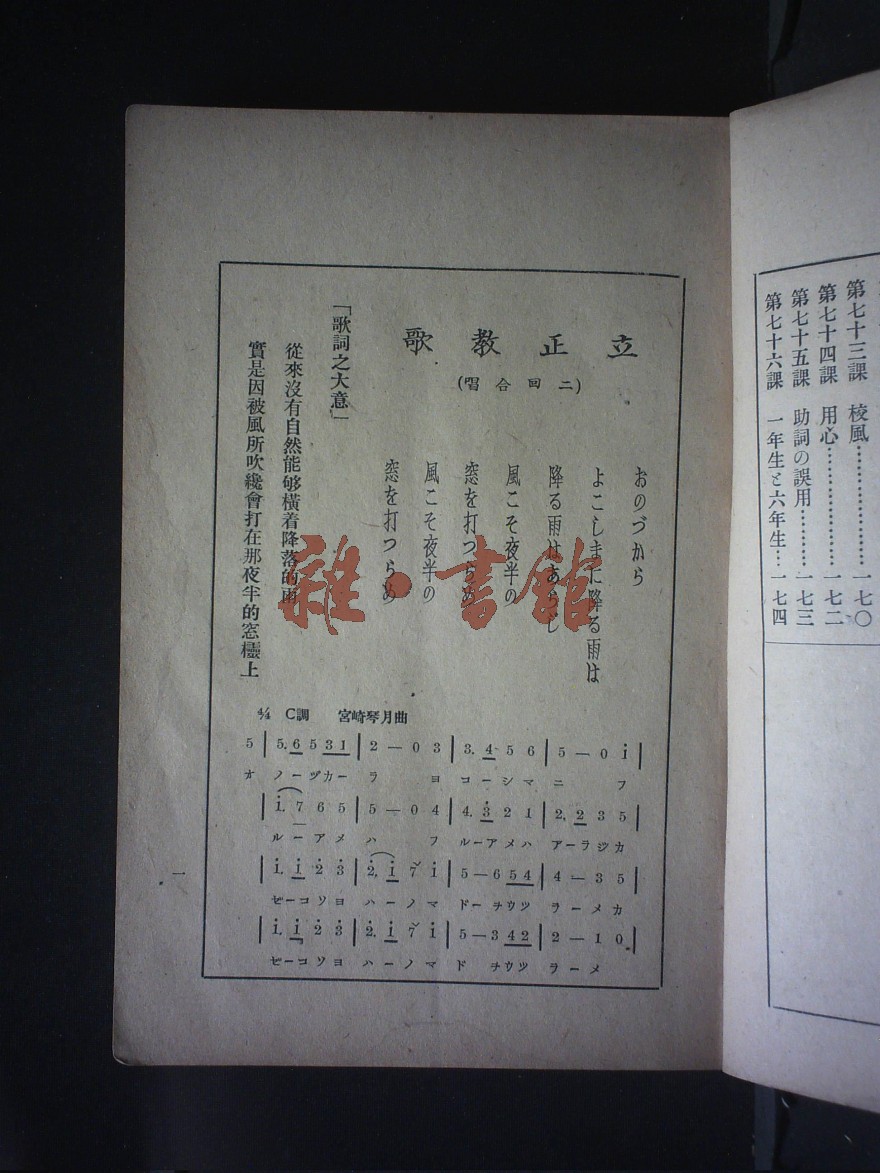 第七十三課 校風………………一七〇
第七十四課 用心………………一七二
第七十五課 助詞の誤用………一七三
第七十六課 一年生と六年生…一七四
立正教歌
(二回合唱)
おのづから
よこしまに降る雨は
降る雨はあらじ
風こそ夜半の
窓を打つらめ
風こそ夜半の
窓を打つらめ
「歌詞之大意」
從來沒有自然能够橫着降落的雨
實是因被風所吹纔會打在那夜半的窓櫺上
4/4 C調 宮崎琴月曲
5 | 5. 6 5 3 1 | 2 — 0 3 | 3. 4 5 6 | 5 — 0 i |
オ ノーヅカー ラ ヨ コーシマ ニ フ
| i. 7 6 5 | 5 — 0 4 | 4. 3 2 1 | 2. 2 3 5 |
ルーアメ ハ フ ルーアメハ アーラジカ
| i. i 2 3 | 2. i 7 i | 5 — 6 5 4 | 4 — 3 5 |
ゼーコソヨ ハーノマ ドーチウツ ラーメカ
| i. i 2 3 | 2. i 7 i | 5 — 3 4 2 | 2 — 1 0 |
ゼーコソヨ ハーノマ ド チウツ ラーメ
一
雜·書館